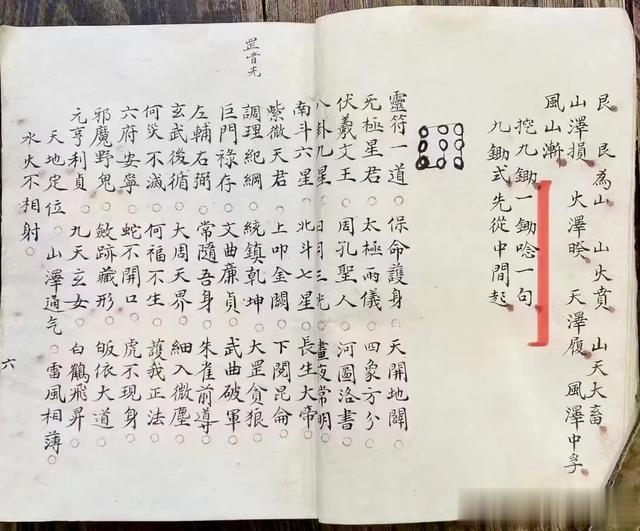 艮　艮為山　山火賁　山天大畜
山澤損　火澤睽　天澤履　風澤中孚
風山漸
挖九鋤一鋤唸一句
九鋤式先從中間起
靈符一道　保命護身　天開地闢
无極星君　太極兩儀　四象方分
伏羲文王　周孔聖人　河圖洛書
八卦九星　日月三光　晝夜常明
南斗六星　北斗七星　長生大帝
紫微天君　上叩金闕　下閱昆侖
調理紀綱　統鎮乾坤　大罡貪狼
巨門祿存　文曲廉貞　武曲破軍
左輔右弼　常隨吾身　朱雀前導
玄武後循　大周天界　細入微塵
何災不滅　何福不生　護我正法
六府安寧　蛇不開口　虎不現身
邪魔野鬼　斂跡藏形　皈依大道
元亨利貞　九天玄女　白鶴飛昇
天地定位　山澤通气　雷風相薄
水火不相射
罡音尢
六